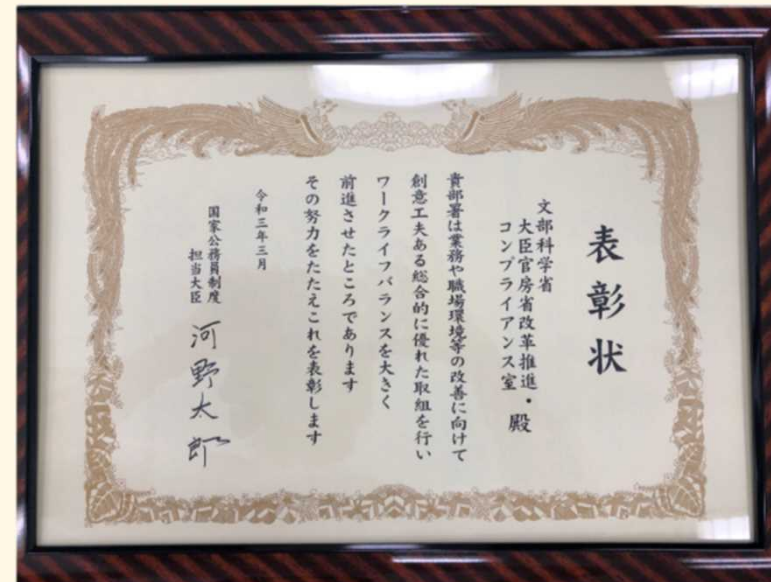 表彰状
文部科学省
大臣官房省改革推進・
コンプライアンス室
殿
貴部署は業務や職場環境等の改善に向けて
創意工夫ある総合的に優れた取組を行い
ワークライフバランスを大きく
前進させたところであります
その努力をたたえこれを表彰します
令和三年三月
国家公務員制度
担当大臣
河野太郎